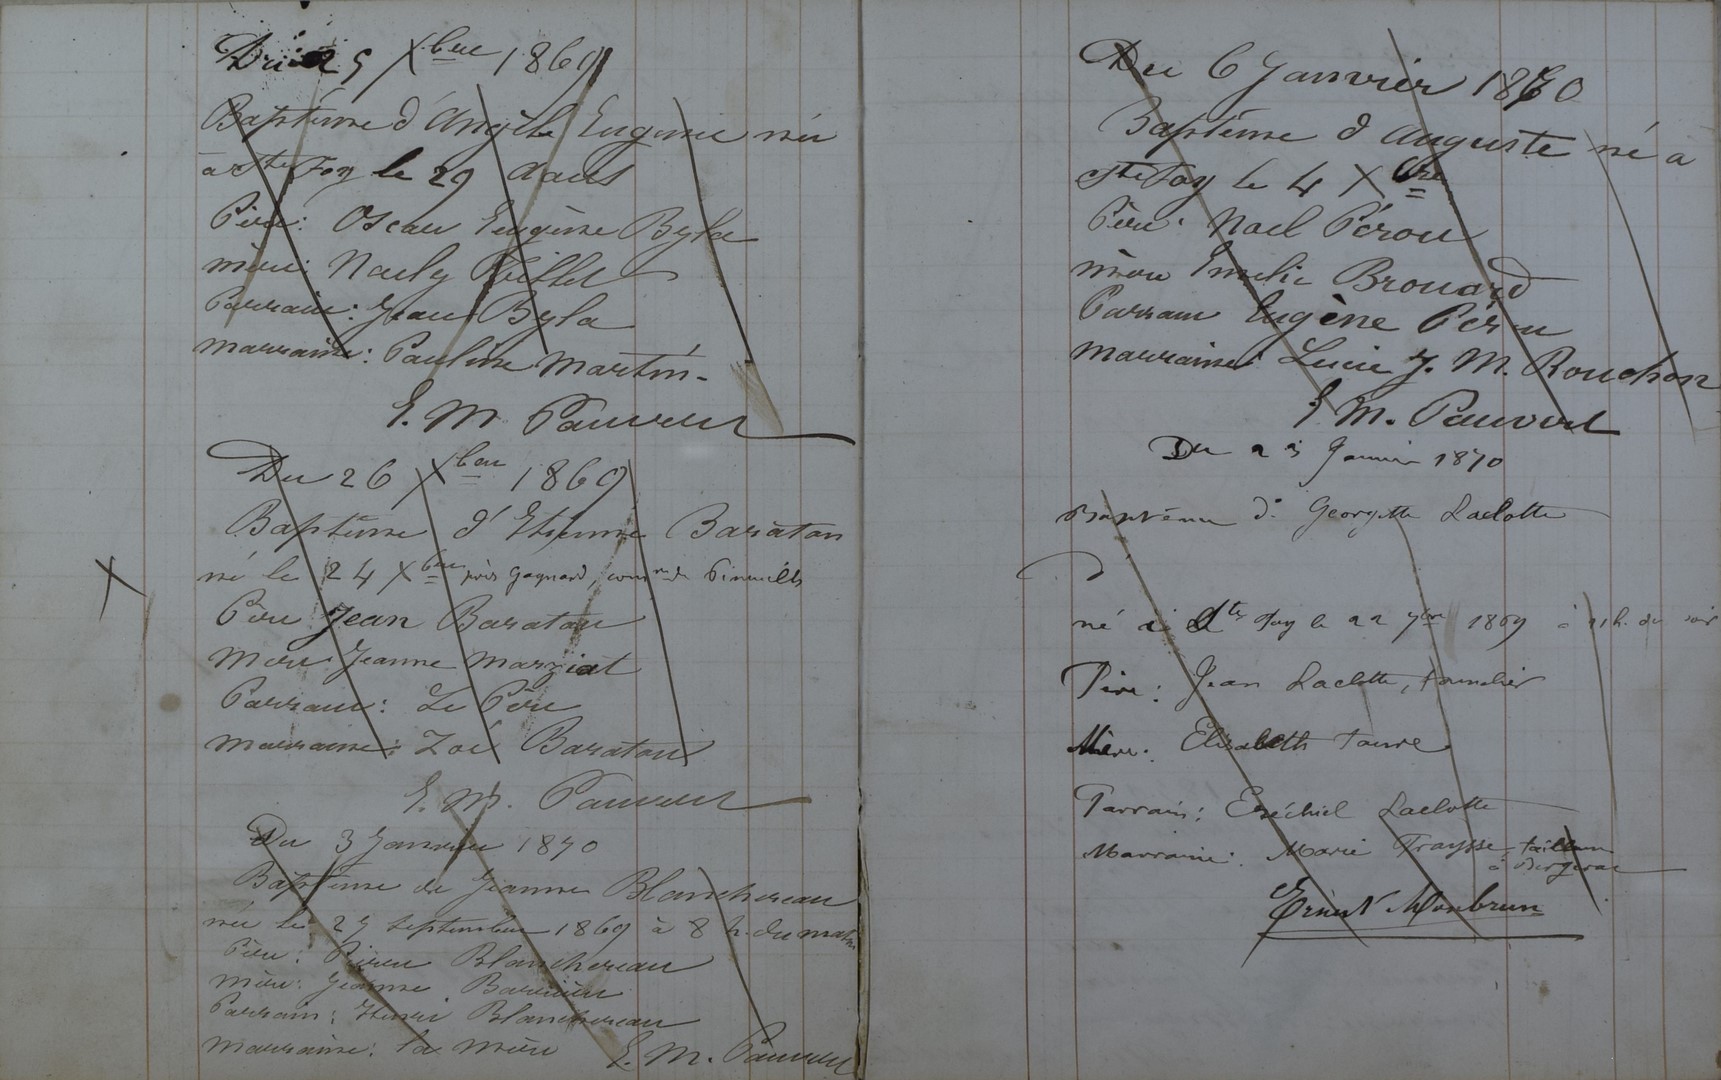 Du 25 Xbre 1869
Baptême d'Angèle Eugénie née
à Ste Foy le 29 Aout
Père: Oscar Eugène Byla
mère: Nancy
Parrain: Jean Byla
marraine: Pauline Martin-
E. M. Pauvert
Du 26 Xbre 1869
Baptême d'Etienne Baraton
né le 24 Xbre près Gagnard, comne de Pineuilh
Père Jean Baraton
Mère Jeanne Marziat
Parrain: Le Père
marraine: Zoé Baraton
E. M. Pauvert
Du 3 Janvier 1870
Baptême de Jeanne Blanchereau
née le 27 septembre 1869 à 8 h. du matin
Père: Pierre Blanchereau
mère: Jeanne Barrière
Parrain: Henri Blanchereau
marraine: la mère E. M. Pauvert
Du 6 Janvier 1870
Baptême d'Auguste né a
Ste Foy le 4 Xbre
Père: Noel Pérou
mère Emelie Brouard
Parrain Eugène Pérou
marraine: Lucie J. M. Rouchon
E. M. Pauvert
Du 23 Janvier 1870
Baptême de Georgette Laclotte
né à Ste Foy le 22 7bre 1869 à 11 h. du soir
Père: Jean Laclotte, tonnelier
Mère: Elisabeth Faure
Parrain: Ezéchiel Laclotte
Marraine: Marie Traysse-tailleur
à Bergerac
Ernest Monbrun